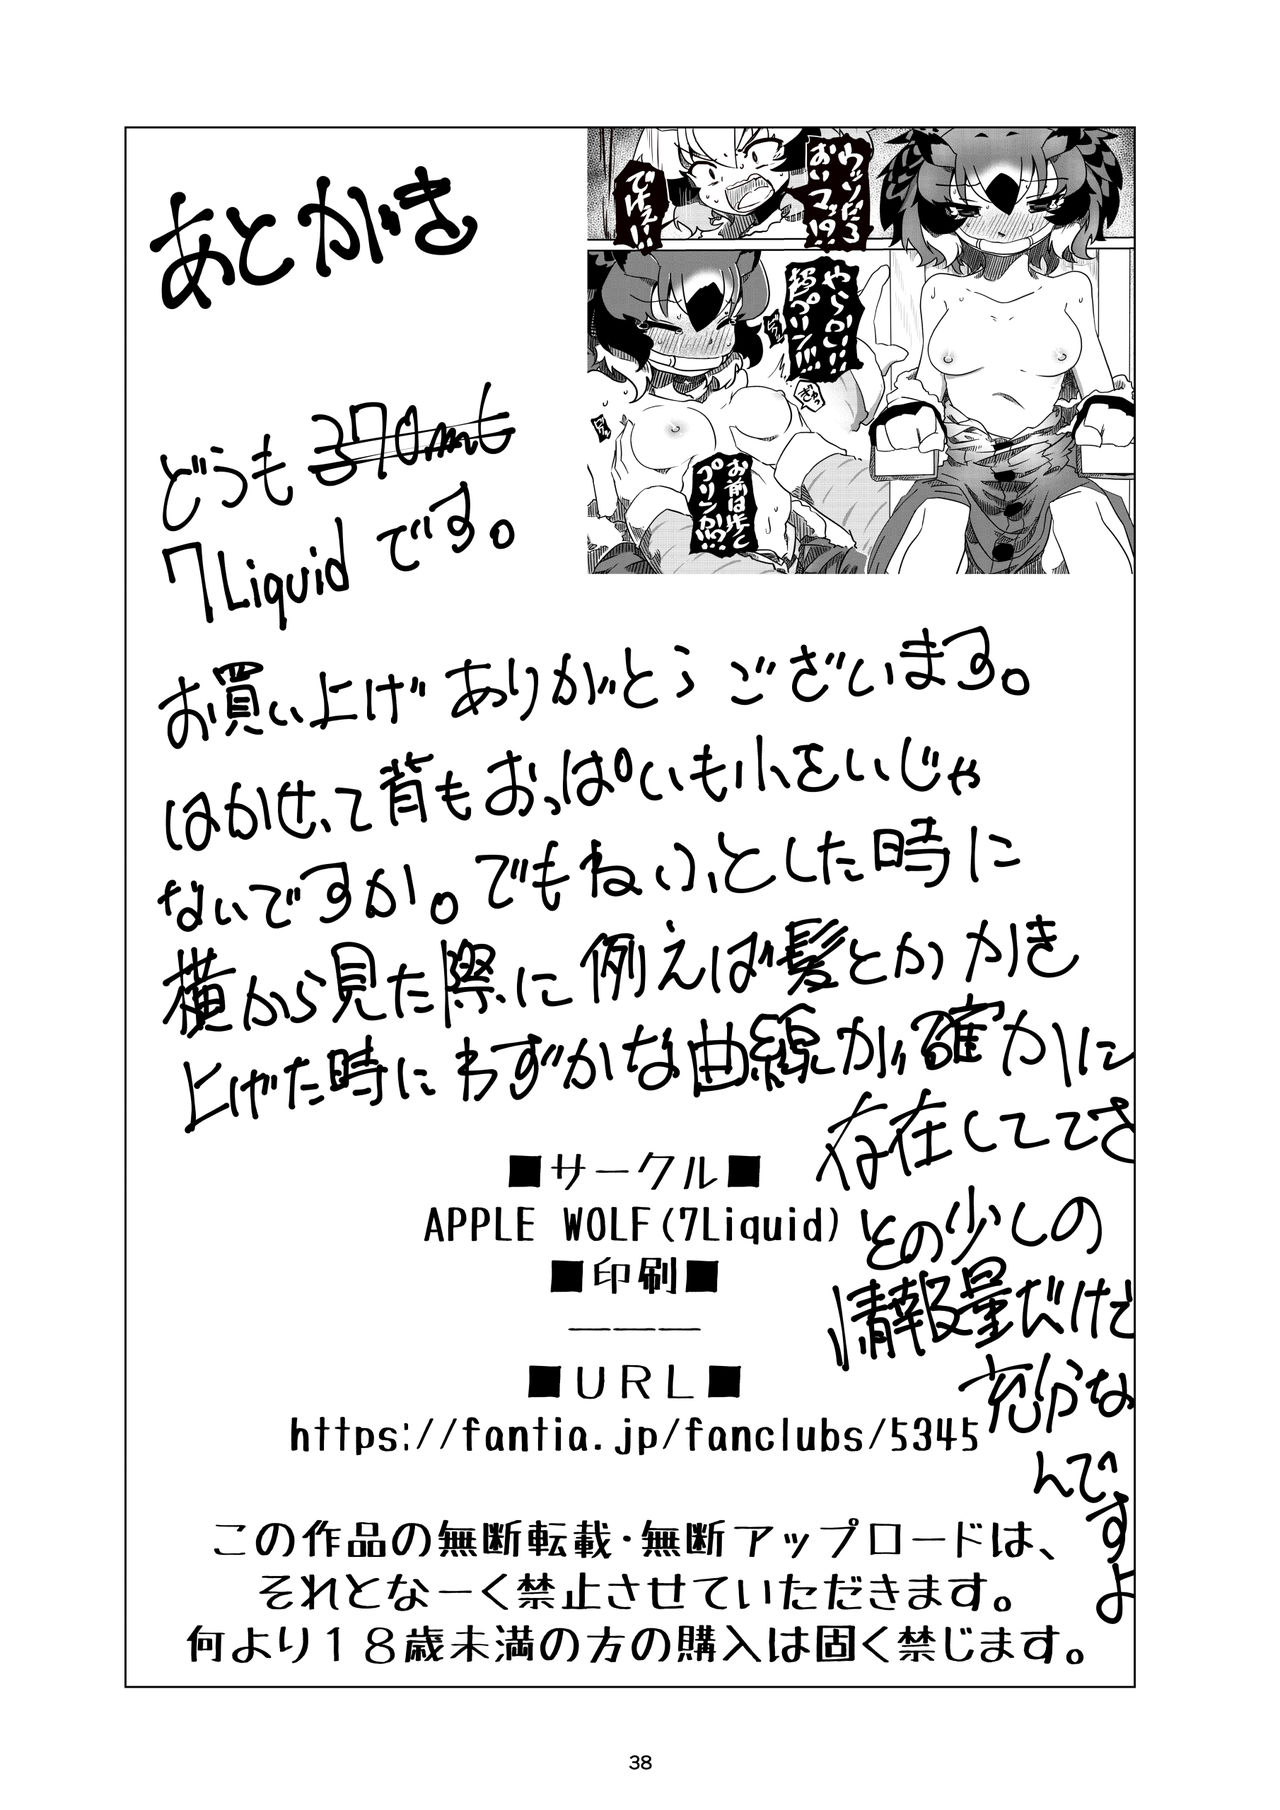 あとがき
ウッソだろ
おいマッタ
でけェ!!
やーらかい!!
超プリン!!!
お前は歩く
プリンか!?
どうも 370ml
7Liquid です。
お買い上げ ありがとう ございます。
はかせって背もおっぱいも小さいじゃ
ないですか。でもねふとした時に
横から見た際に例えば髪とか かき
上げた時に わずかな曲線が確かに
存在しててさ
その少しの
情報量だけで
充分な
んです
よ
■サークル■
APPLE WOLF(7Liquid)
■印刷■
———
■URL■
https://fantia.jp/fanclubs/5345
この作品の無断転載・無断アップロードは、
それとなーく禁止させていただきます。
何より18歳未満の方の購入は固く禁じます。
38